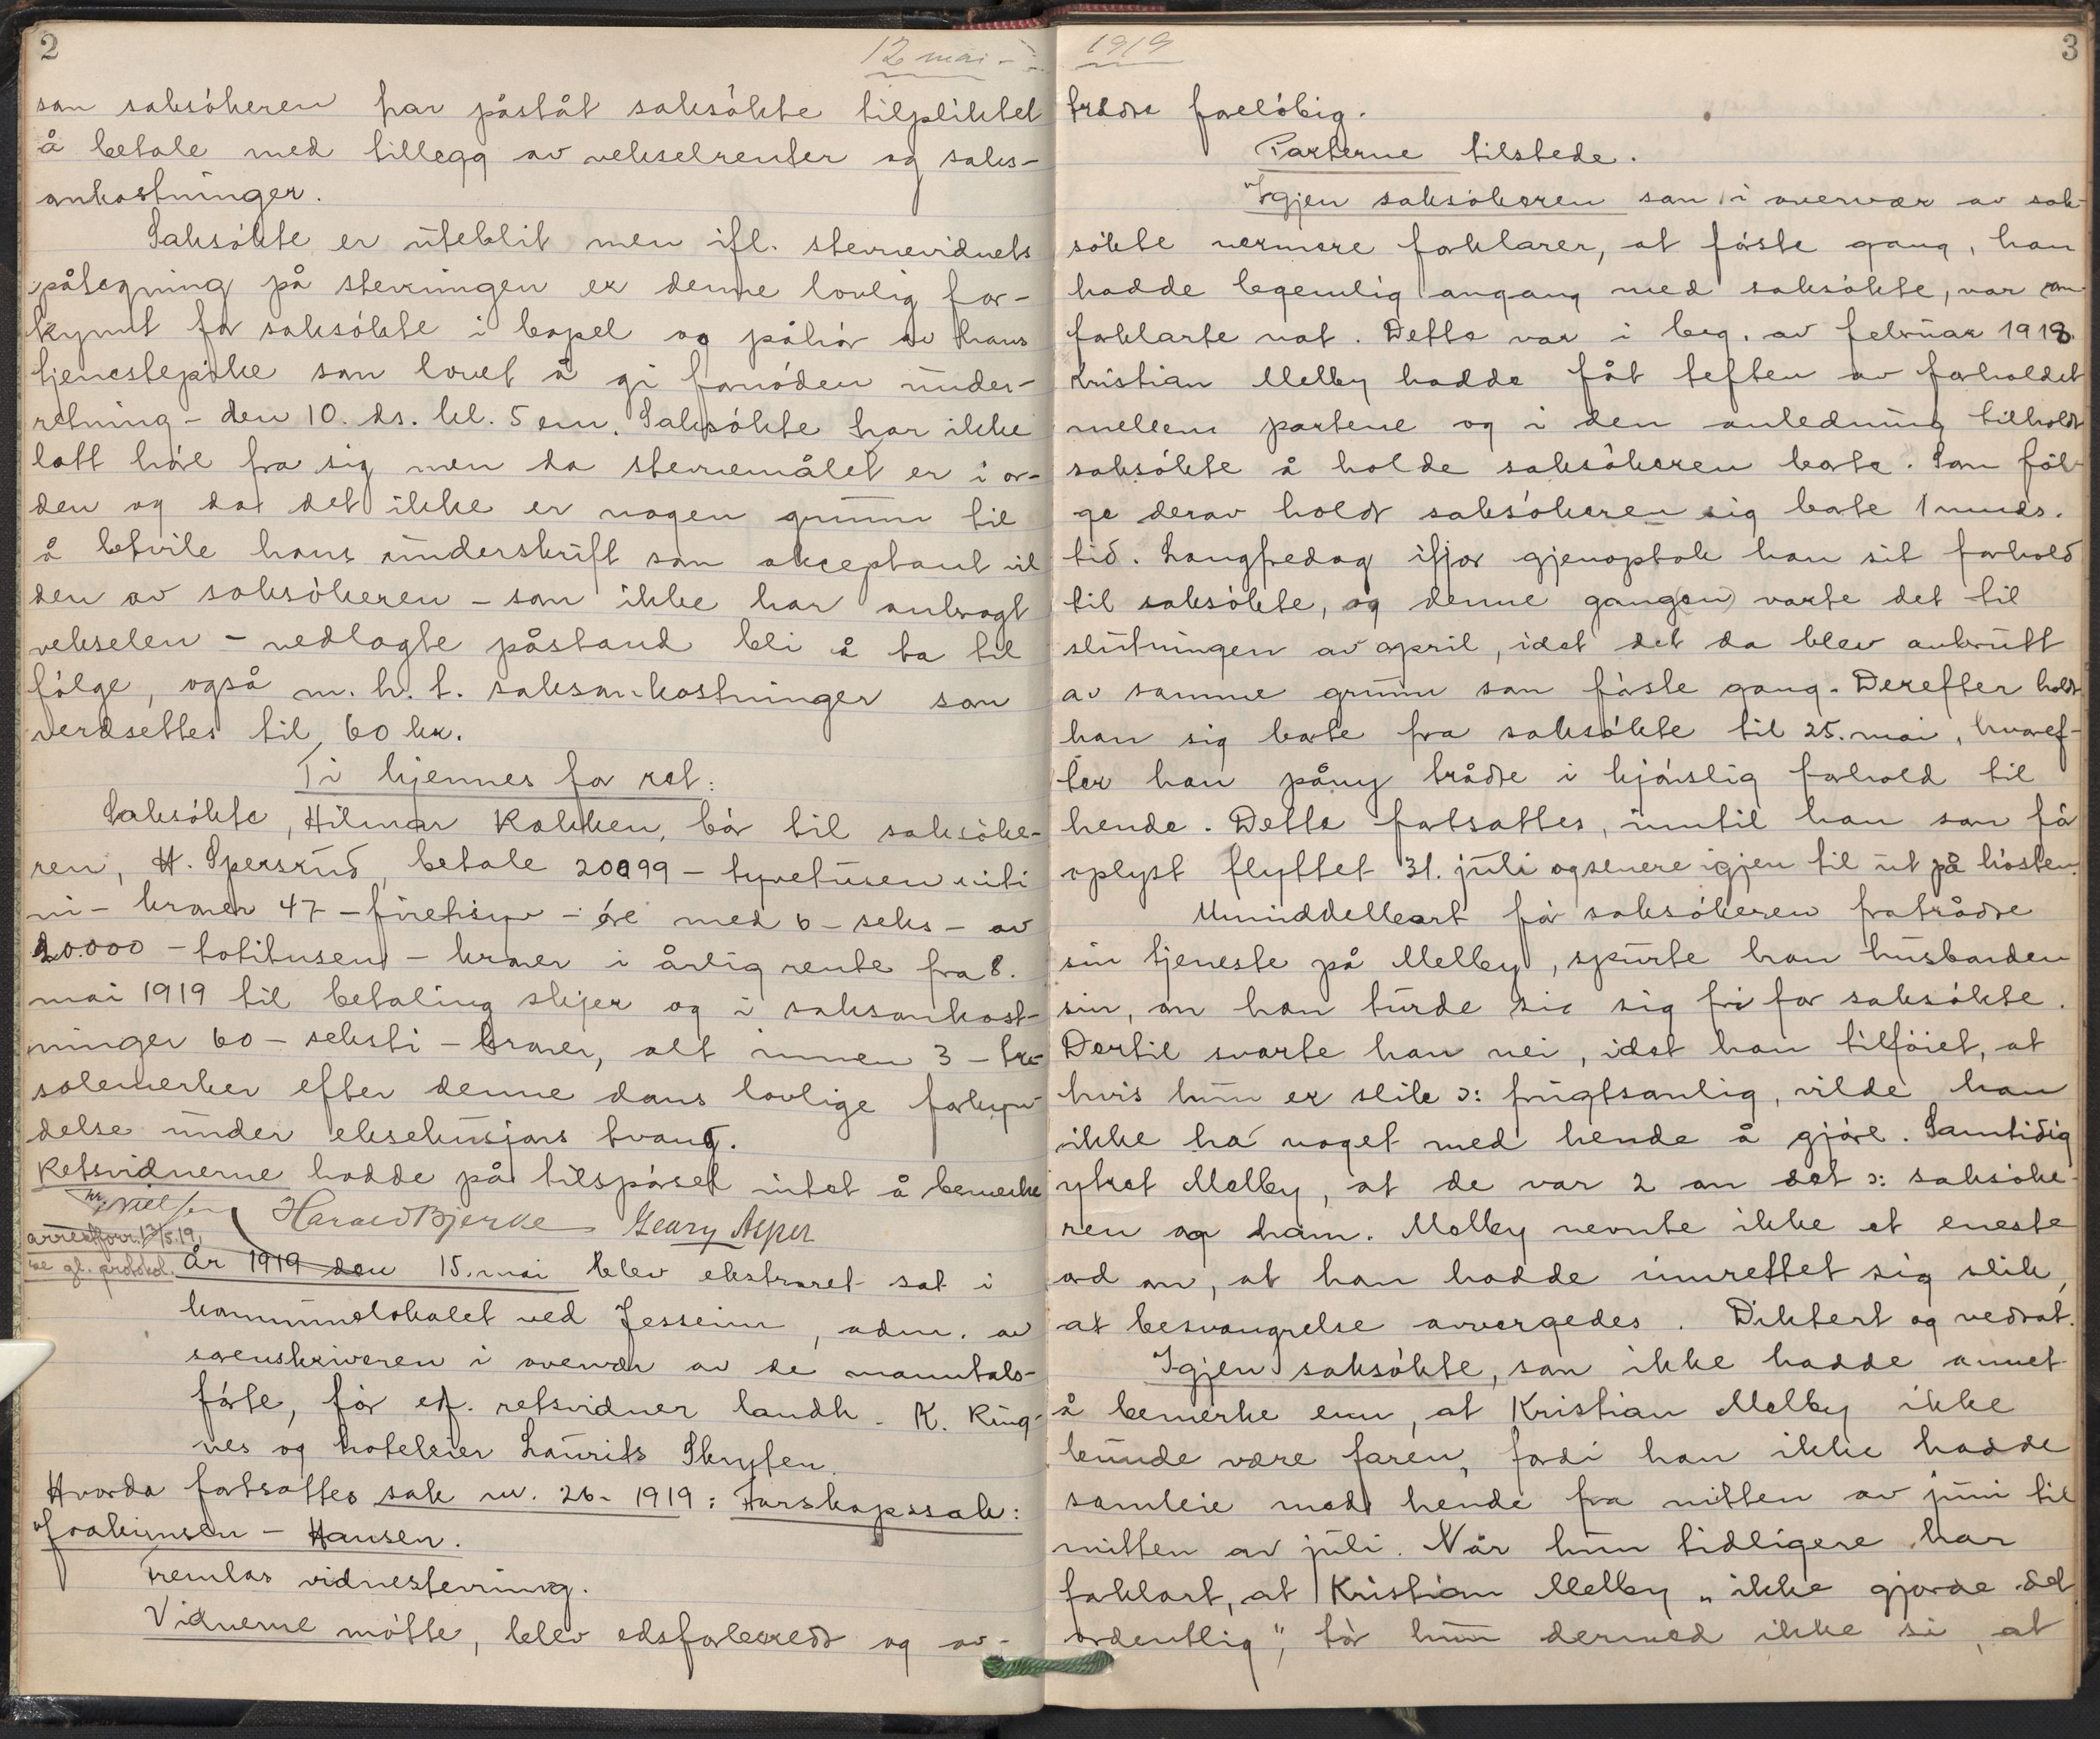 2
12 mai -
som saksökeren har påståt saksökte tilpliktet
å betale med tillegg av vekselrenter og saks-
omkostninger.
Saksökte er uteblit men ifl. stevnevidnets
påtegning på stevningen er denne lovlig for-
kynt for saksökte i bopel og påhör av hans
tjenestepike som lovet å gi fornöden under-
retning - den 10. ds. kl. 5 em. Saksökte har ikke
latt höre fra sig men da stevnemålet er i or-
den og da det ikke er nogen grunn til
å betvile hans underskrift som akceptant vil
den av saksökeren - som ikke har ombragt
vekselen - nedlagte påstand bli å ta til
fölge, også m. h. t. saksomkostninger som
verdsettes til 60 kr.
Ti kjennes for ret:
Saksökte, Hilmar Kokken, bör til saksöke-
ren, H. Spersrud, betale 20099 - tyvetusen niti
ni - kroner 47 - firetisyv - öre med 6 - seks - av
20.000 - totitusen - kroner i årlig rente fra 8.
mai 1919 til betaling skjer og i saksomkost-
ninger 60 - seksti - kroner, alt innen 3 - tre
solemerker efter denne doms lovlige forkyn-
delse under eksekusjons tvang.
Retsvidnerne hadde på tilspörsel intet å bemerke
Nielsen Harald Bjerke Georg Asper
arrestforr. 13/5.19,
se gl. protokol.
År 1919 den 15. mai blev ekstraret sat i
kommunelokalet ved Jessheim, adm. av
sorenskriveren i overvær av de manntals-
förte, för edf. retsvidner landh. K. Ring-
nes og hoteleier Laurits Skryten.
Hvorda fortsattes sak nr. 26 - 1919: Farskapssak:
Joakimsen - Hansen.
Fremlas vidnestevning.
Vidnerne mötte, blev edsforberedt og av-
1919
3
trådte foreløbig.
Parterne tilstede.
Igjen saksökeren som i overvær av sak-
sökte nærmere forklarer, at förste gang, han
hadde legemlig omgang med saksökte, var om-
forklarte nat. Dette var i beg. av februar 1918.
Kristian Melby hadde fåt teften av forholdet
mellem partene og i den anledning tilholdt
saksökte å holde saksökeren borte. Som föl-
ge derav holdt saksökeren sig borte 1 mnds.
tid. Langfredag ifjor gjenoptok han sit forhold
til saksökte, og denne gang(en) varte det til
slutningen av april, idet det da blev avbrutt
av samme grunn som förste gang. Derefter holdt
han sig borte fra saksökte til 25. mai, hvoref-
ter han påny trådte i kjönslig forhold til
hende. Dette fortsattes, inntil han som för
oplyst flyttet 31. juli og senere igjen til ut på hösten.
Umiddelbart för saksökeren fratrådte
sin tjeneste på Melby, spurte han husbonden
sin, om han turde si sig fri for saksökte.
Dertil svarte han nei, idet han tilföiet, at
hvis hun er slik ɔ: frugtsomlig, vilde han
ikke ha noget med hende å gjöre. Samtidig
ytret Melby, at de var 2 om det ɔ: saksöke-
ren og ham. Melby nevnte ikke et eneste
ord om, at han hadde innrettet sig slik,
at besvangrelse avvergedes. Diktert og vedtat.
Igjen saksökte, som ikke hadde annet
å bemerke enn, at Kristian Melby ikke
kunde være faren, fordi han ikke hadde
samleie med hende fra mitten av juni til
mitten av juli. Når hun tidligere har
forklart, at Kristian Melby „ikke gjorde det
ordentlig", tör hun dermed ikke si, at